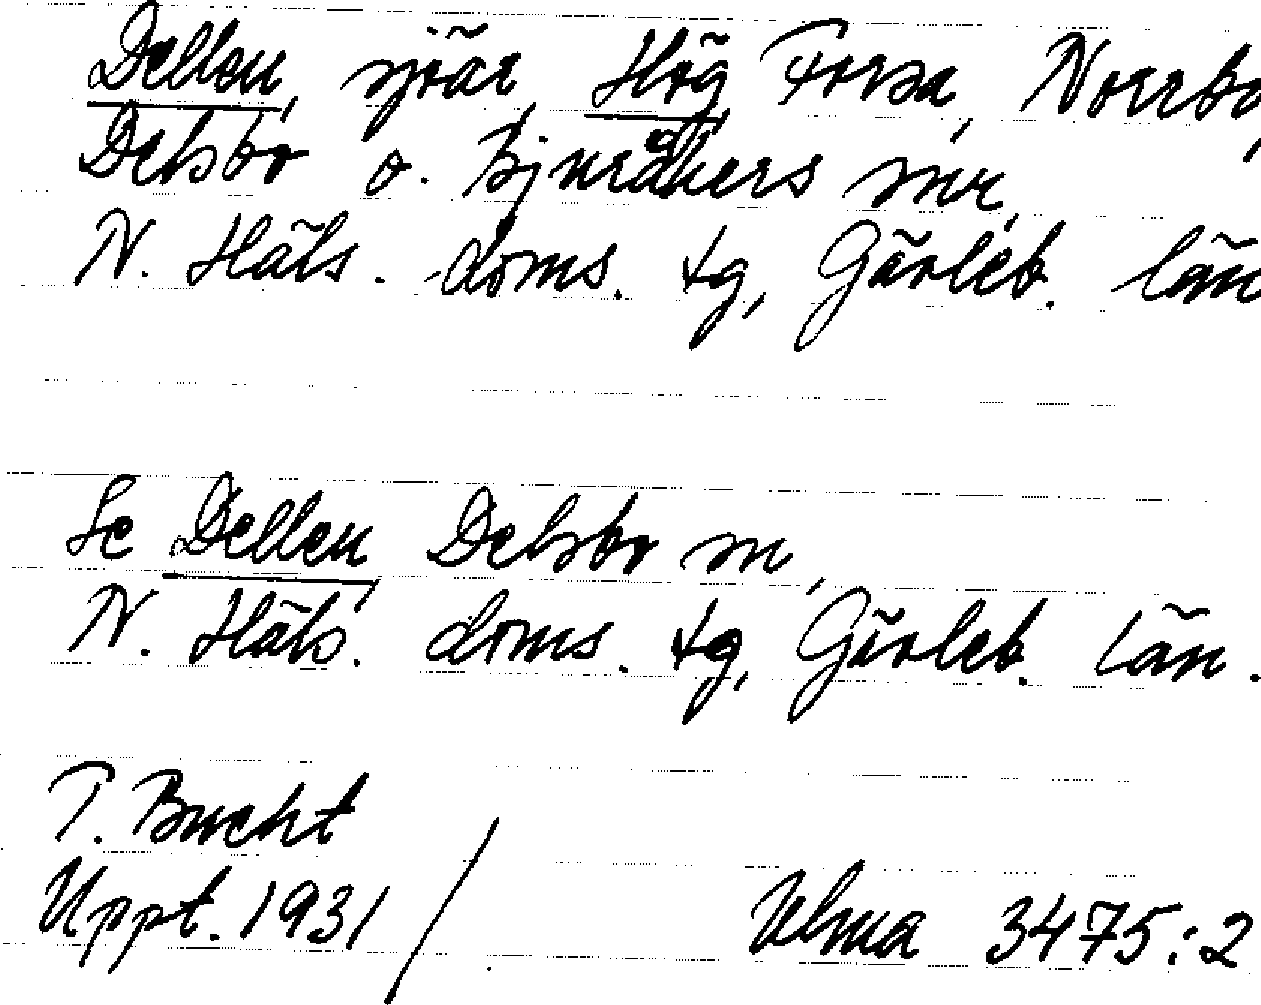 Dellen, sjöar, Hög, Forsa, Norrbo,
Delsbo o. Bjuråkers snr,
N. Häls. doms. tg, Gävleb. län
Se Dellen, Delsbo sn,
N. Häls. doms. tg, Gävleb. län.
T. Bucht
Uppt. 1931 / Ulma 3475:2